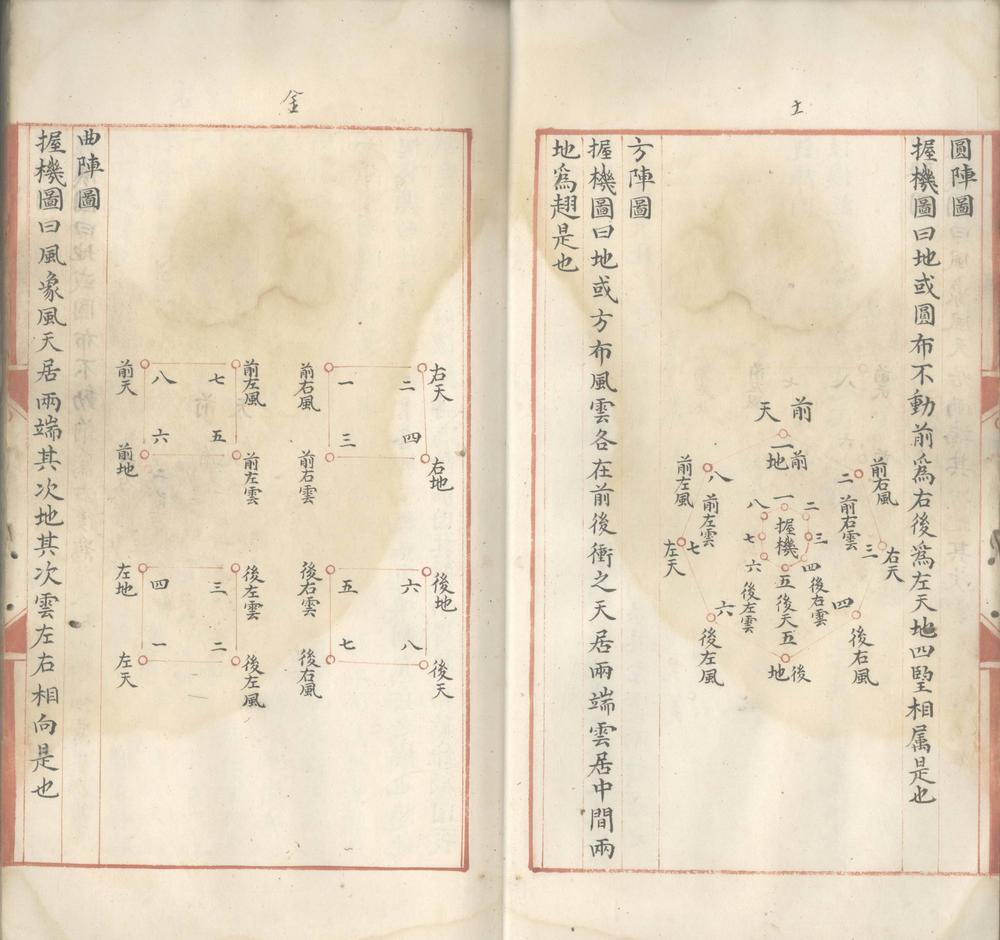 土
圓陣圖
握機圖曰地或圓布不動前為右後為左天地四朢相属是也
前
天
一
前
地
前右風
二
前右雲
前左風
八
前左雲
右天
三
左天
七
一
二
三
四
五
六
七
八
握機
後右雲
後左雲
後天
四
五
六
後右風
後左風
後
地
方陣圖
握機圖曰地或方布風雲各在前後衝之天居兩端雲居中間兩
地為趐是也
全
右天
二
一
前右風
前左風
七
八
前天
右地
四
三
前右雲
前左雲
五
六
前地
後地
六
五
後右雲
後左雲
三
四
左地
後天
八
七
後右風
後左風
二
一
左天
曲陣圖
握機圖曰風象風天居兩端其次地其次雲左右相向是也